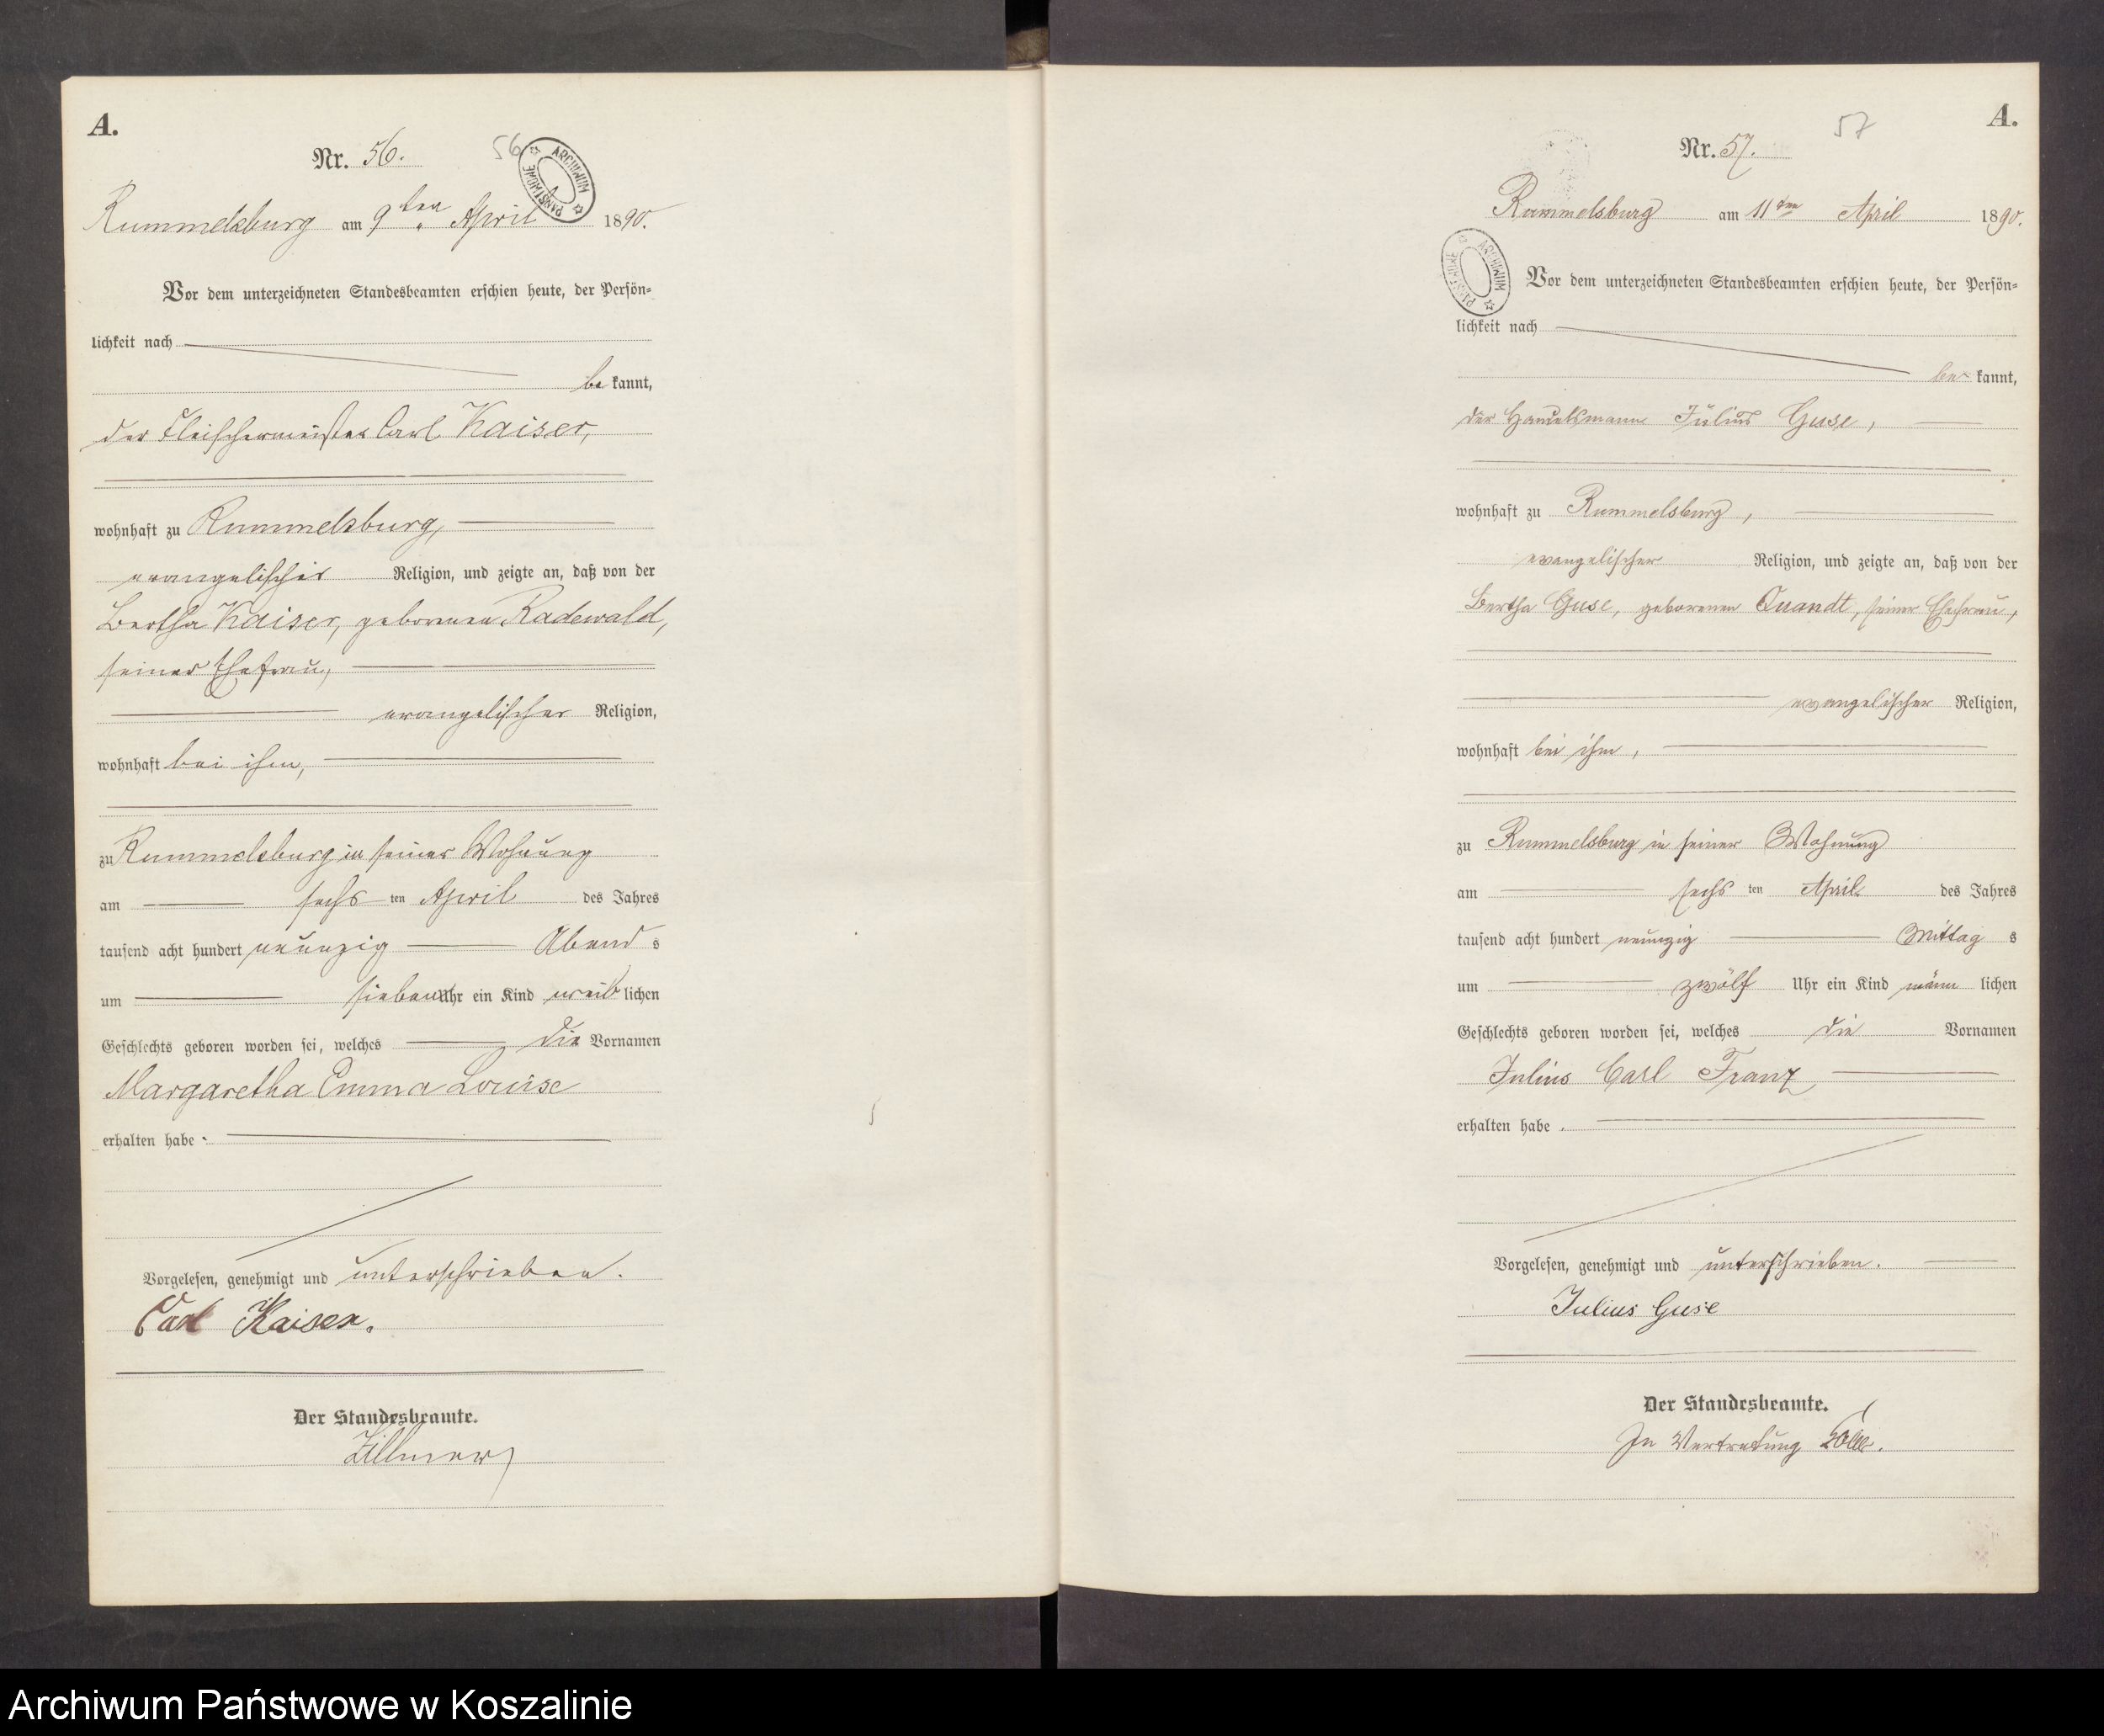 A.
Nr. 56.
56
ARCHIWUM PAŃSTWOWE
Rummelsburg am 9ten April 1890.
Vor dem unterzeichneten Standesbeamten erschien heute, der Persön-
lichkeit nach
be kannt,
der Fleischermeister Carl Kaiser,
wohnhaft zu Rummelsburg,
evangelischer Religion, und zeigte an, daß von der
Bertha Kaiser, geborenen Radewald,
seiner Ehefrau,
evangelischer Religion,
wohnhaft bei ihm,
zu Rummelsburg in seiner Wohnung
am sechs ten April des Jahres
tausend acht hundert neunzig Abend s
um sieben Uhr ein Kind weib lichen
Geschlechts geboren worden sei, welches die Vornamen
Margaretha Emma Louise
erhalten habe.
Vorgelesen, genehmigt und unterschrieben.
Carl Kaiser.
Der Standesbeamte.
Zillmer
A.
57
Nr. 57.
Rummelsburg am 11ten April 1890.
ARCHIWUM PAŃSTWOWE
Vor dem unterzeichneten Standesbeamten erschien heute, der Persön-
lichkeit nach
be- kannt,
der Handelsmann Julius Guse,
wohnhaft zu Rummelsburg,
evangelischer Religion, und zeigte an, daß von der
Bertha Guse, geborenen Quandt, seiner Ehefrau,
evangelischer Religion,
wohnhaft bei ihm,
zu Rummelsburg in seiner Wohnung
am sechs ten April des Jahres
tausend acht hundert neunzig Mittag s
um zwölf Uhr ein Kind männ lichen
Geschlechts geboren worden sei, welches die Vornamen
Julius Carl Franz
erhalten habe.
Vorgelesen, genehmigt und unterschrieben.
Julius Guse
Der Standesbeamte.
In Vertretung
Archiwum Państwowe w Koszalinie